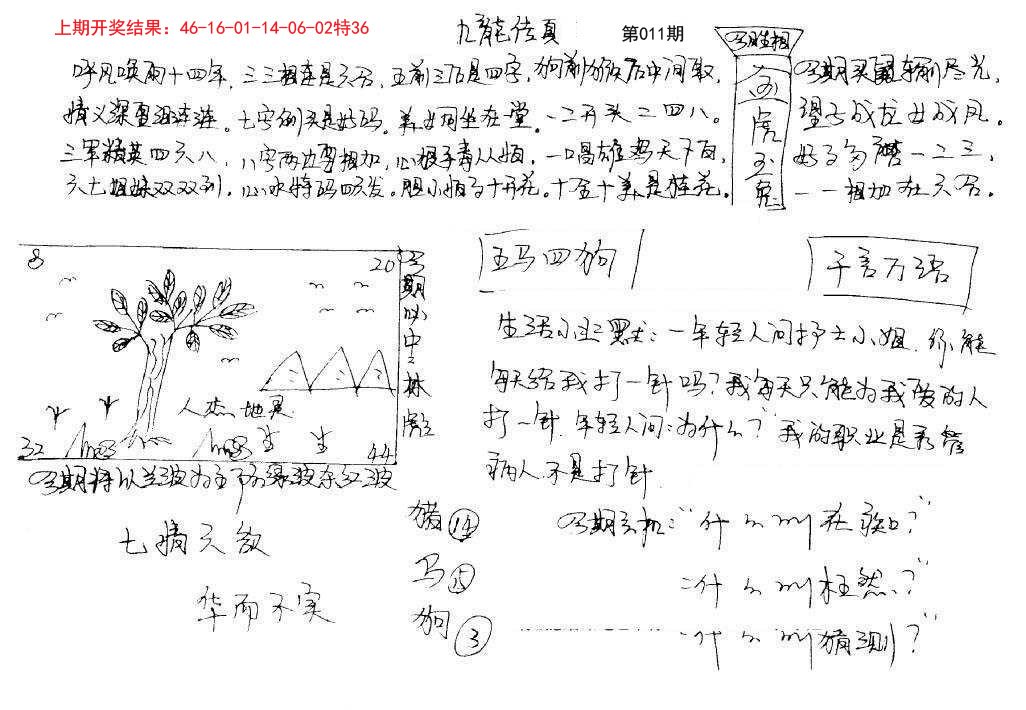 上期开奖结果：46-16-01-14-06-02特36
九龍传真
第011期
今期生肖
呼风唤雨十四年，三三相连是六合，五前三后是四字，狗前猴后中间取，
情义深重源连连。七字倒头是好码。美女同坐在堂。一二开头二四八。
三军精英四六八，八字两边要相加，心想手青人怕，一唱雄鸡天下白，
六七姐妹双双到，心水特码四六发。胆小怕了十开花。十全十美是桂花。
虎
玉兔
望子成龙女成凤。
一二三，
一一相加在六合。
8
20
今期必中林彪
人杰地灵
生 生
32
44
今期特以兰波为主防绿波杂红波
五马四狗
千言万语
生活小幽默：一年轻人问护士小姐，你能
每天给我打一针吗？我每天只能为我爱的人
打一针，年轻人问：为什么？我的职业是看管
病人不是打针
七情六欲
华而不实
猪⑭
马⑮
狗③
今期玄机："什么叫在疑？"
："什么叫枉然？"
："什么叫猜测？"